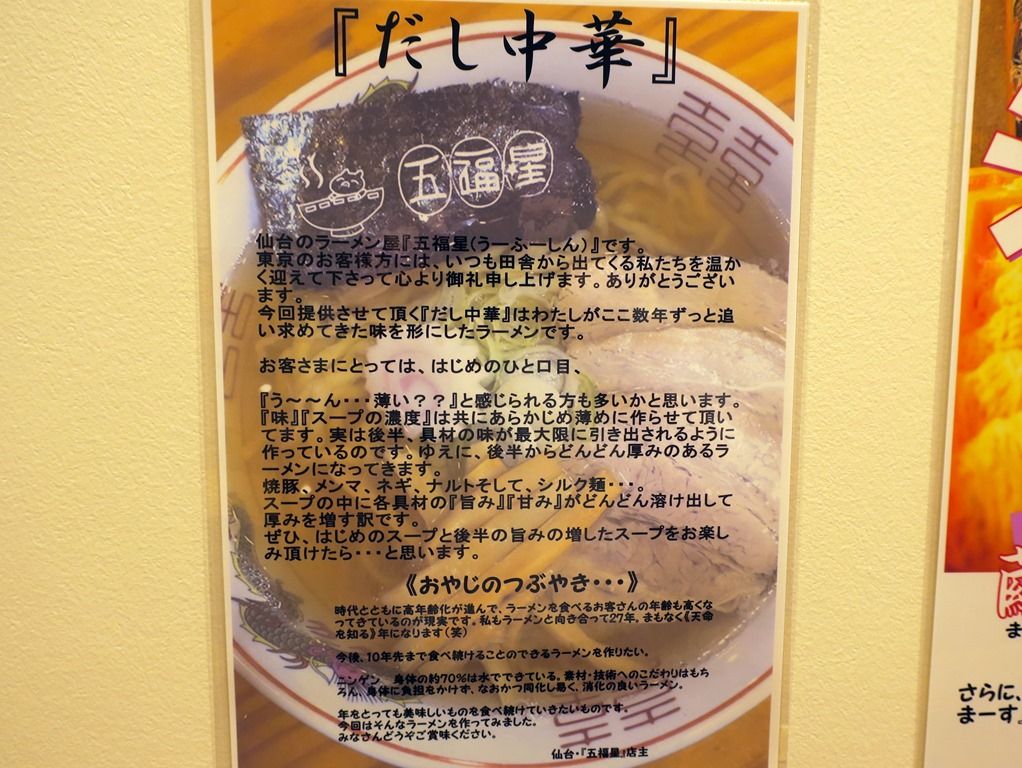 『だし中華』
五福星
仙台のラーメン屋『五福星(うーふーしん)』です。
東京のお客様方には、いつも田舎から出てくる私たちを温か
く迎えて下さって心より御礼申し上げます。ありがとうござい
ます。
今回提供させて頂く『だし中華』はわたしがここ数年ずっと追
い求めてきた味を形にしたラーメンです。
お客さまにとっては、はじめのひと口目、
『う～～ん・・・薄い？？』と感じられる方も多いかと思います。
『味』『スープの濃度』は共にあらかじめ薄めに作らせて頂い
てます。実は後半、具材の味が最大限に引き出されるように
作っているのです。ゆえに、後半からどんどん厚みのあるラ
ーメンになってきます。
焼豚、メンマ、ネギ、ナルトそして、シルク麺・・・。
スープの中に各具材の『旨み』『甘み』がどんどん溶け出して
厚みを増す訳です。
ぜひ、はじめのスープと後半の旨みの増したスープをお楽し
み頂けたら・・・と思います。
《おやじのつぶやき・・・》
時代とともに高年齢化が進んで、ラーメンを食べるお客さんの年齢も高くな
ってきているのが現実です。私もラーメンと向き合って27年。まもなく《天命
を知る》年になります（笑）
今後、10年先まで食べ続けることのできるラーメンを作りたい。
ニンゲン 身体の約70％は水でできている。素材・技術へのこだわりはもち
ろん、身体に負担をかけず、なおかつ同化し易く、消化の良いラーメン。
年をとっても美味しいものを食べ続けていきたいものです。
今回はそんなラーメンを作ってみました。
みなさんどうぞご賞味ください。
仙台・『五福星』店主
さらに、
まーす。